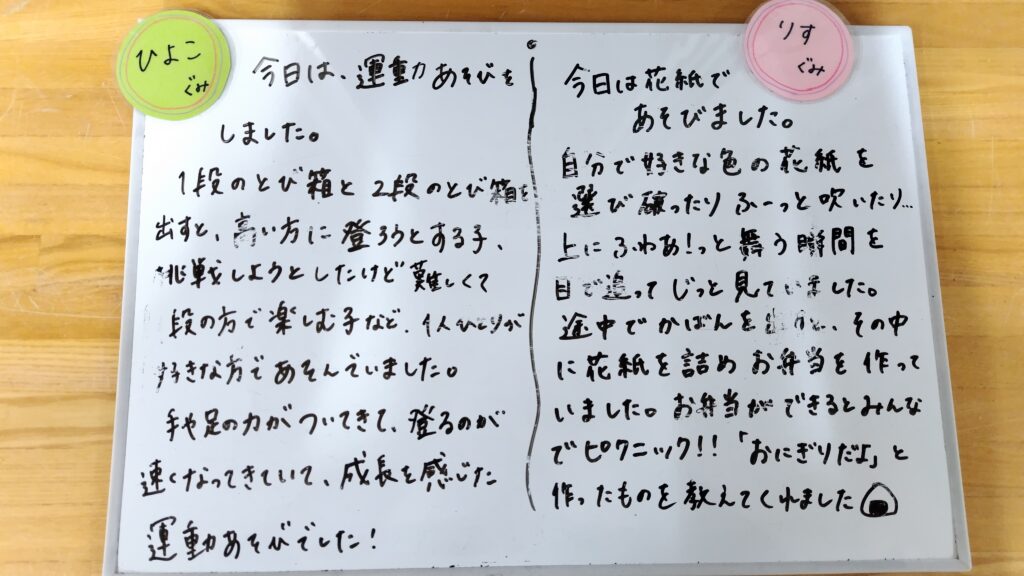 ひよこ
ぐみ
今日は、運動あそびを
しました。
1段のとび箱と2段のとび箱を
出すと、高い方に登ろうとする子、
挑戦しようとしたけど難しくて
段の方で楽しむ子など、1人ひとりが
好きな方であそんでいました。
手や足の力がついてきて、登るのが
速くなってきていて、成長を感じた
運動あそびでした!
りす
ぐみ
今日は花紙で
あそびました。
自分で好きな色の花紙を
選び ったり ふーっと吹いたり…
上にふわあ!っと舞う瞬間を
目で追ってじっと見ていました。
途中でかばんを 、その中
に花紙を詰めお弁当を作って
いました。お弁当ができるとみんな
でピクニック!!「おにぎりだよ」と
作ったものを教えてくれました